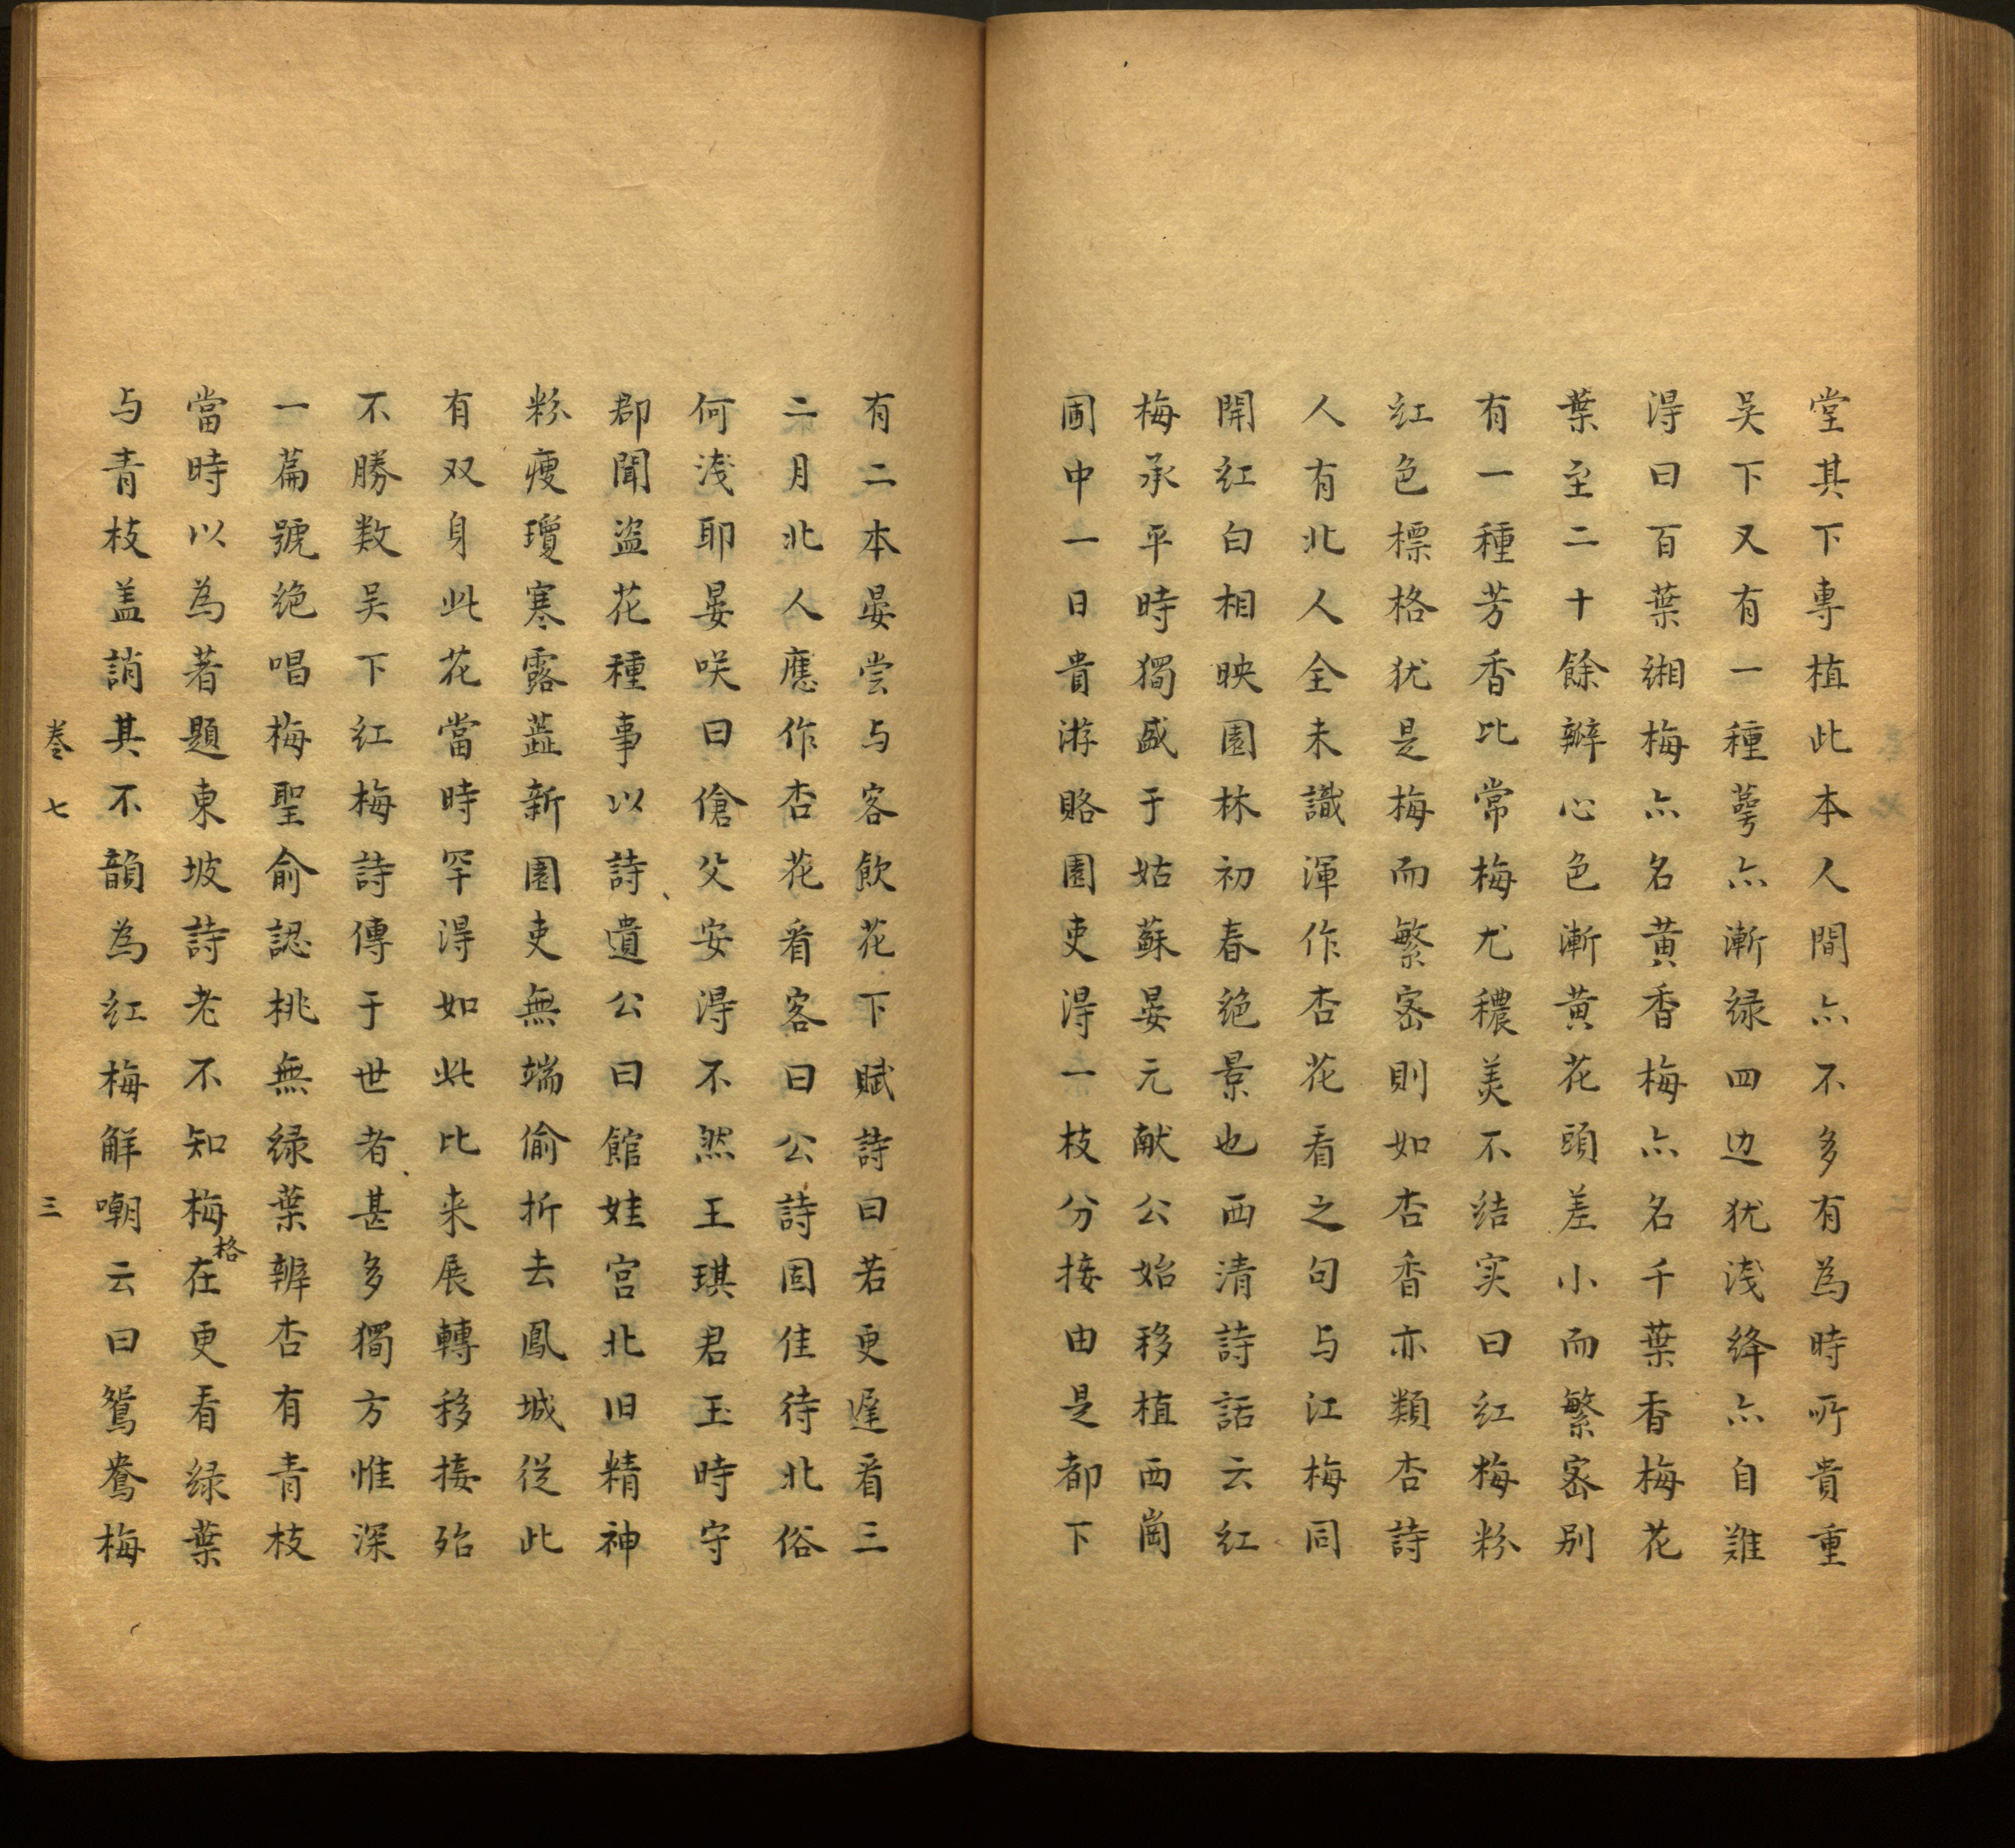 堂其下專植此本人間亦不多有為時所貴重
吴下又有一種蕚亦漸緑四边犹浅绛亦自難
得曰百葉緗梅亦名黄香梅亦名千葉香梅花
葉至二十餘瓣心色漸黄花頭差小而繁宻别
有一種芳香比常梅尤穠美不结实曰红梅粉
红色標格犹是梅而繁宻則如杏香亦類杏詩
人有北人全未識渾作杏花看之句与江梅同
開红白相映園林初春绝景也西清詩話云红
梅承平時獨盛于姑蘇晏元献公始移植西崗
圃中一日貴游賂園吏得一枝分接由是都下
有二本晏尝与客飲花下賦詩曰若更遲看三
二月北人應作杏花看客曰公詩固佳待北俗
何浅耶晏咲曰傖父安得不然王琪君玉時守
郡聞盗花種事以詩遺公曰館娃宫北旧精神
粉瘦瓊寒露蕋新園吏無端偷折去鳳城從此
有双身此花當時罕得如此比来展轉移接殆
不勝数吴下红梅詩傳于世者甚多獨方惟深
一篇號绝唱梅聖俞認桃無緑葉辨杏有青枝
當時以為著題東坡詩老不知梅格在更看緑葉
与青枝盖誚其不韻為红梅解嘲云曰鴛鴦梅
卷七 三